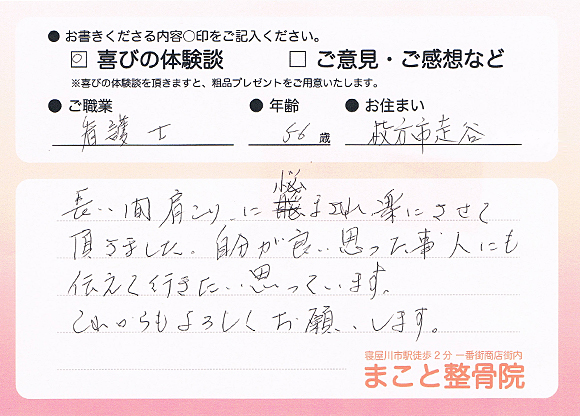 ● お書きくださる内容○印をご記入ください。
☑ 喜びの体験談 □ ご意見・ご感想など
※喜びの体験談を頂きますと、粗品プレゼントをご用意いたします。
● ご職業 ● 年齢 ● お住まい
看護士 56歳 枚方市走谷
長い間肩こりに悩まされ楽にさせて
頂きました。自分が良い思った事人にも
伝えて行きたい思っています。
これからもよろしくお願いします。
寝屋川市駅徒歩2分 一番街商店街内
まこと整骨院